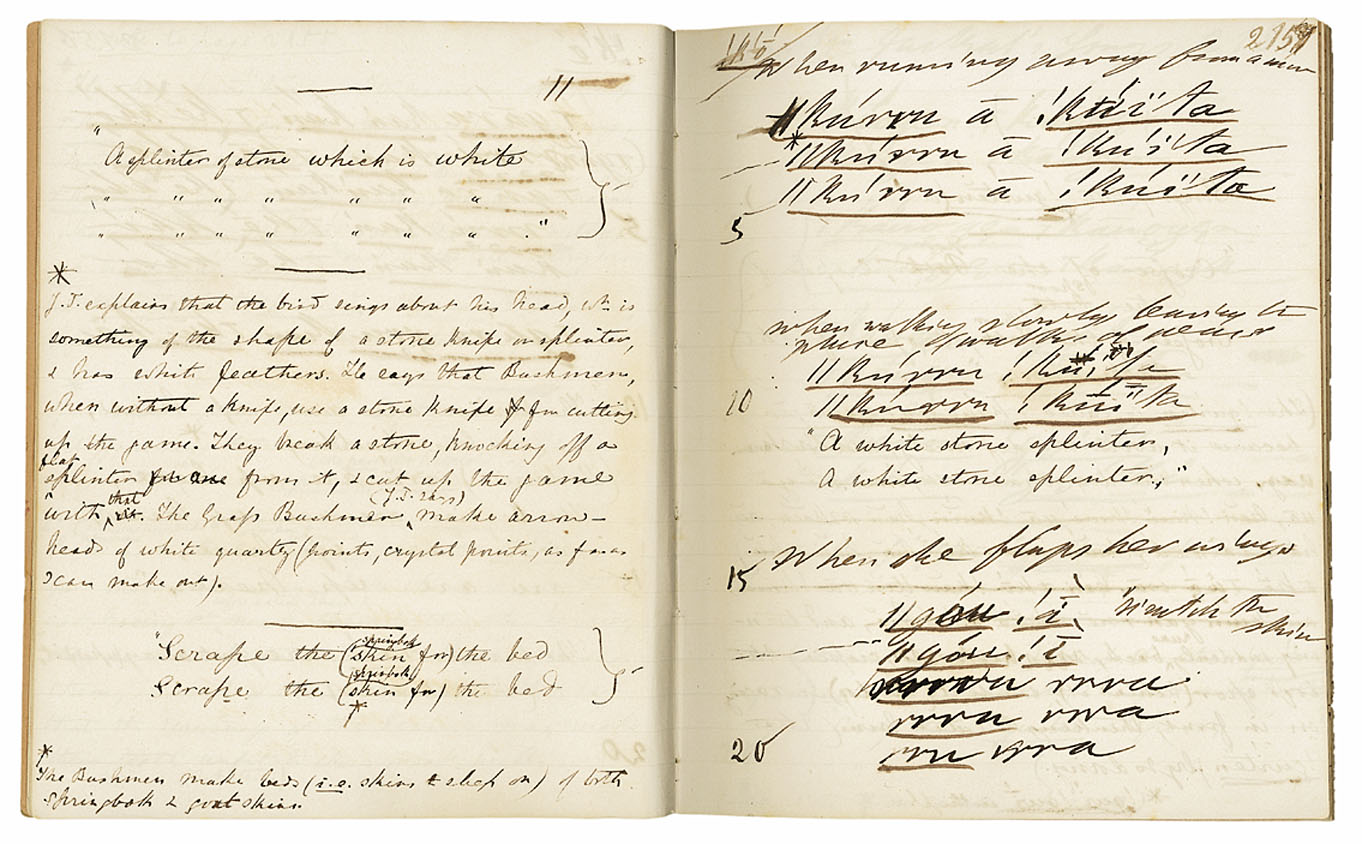 "
A splinter of stone which is white
" " " " " " "
" " " " " " " . "
*
J.T. explains that the bird sings about his head, wh. is
something of the shape of a stone knife or splinter,
& has white feathers. He says that Bushmen,
when without a knife, use a stone knife for cutting
up the game. They break a stone, knocking off a
flat
splinter from it, & cut up the game
that (J.T. says)
with it. The Grass Bushmen make arrow-
heads of white quartz (points, crystal points, as far as
I can make out).
springbok
"Scrape the (skin for) the bed
springbok
Scrape the (skin for) the bed
*
*
The Bushmen make beds (i.e. skins to sleep on) of both
Springbok & goat skins.
2157
When running away from a man
ǁkúrru ā ǃkúïta
* ǁkúrru ā ǃkúïta
ǁkúrru ā ǃkúïta
5
when walking slowly leaving the
place & walks
ǁkúrru ǃkúïta
10 ǁkúrru ǃkúïta
"A white stone splinter,
A white stone splinter;"
When she flaps her wings
15
ǁgóu ǃī scratch the
skin
ǁgóu ǃī
rrrru rrra
rrru rrra
20 rru rrra